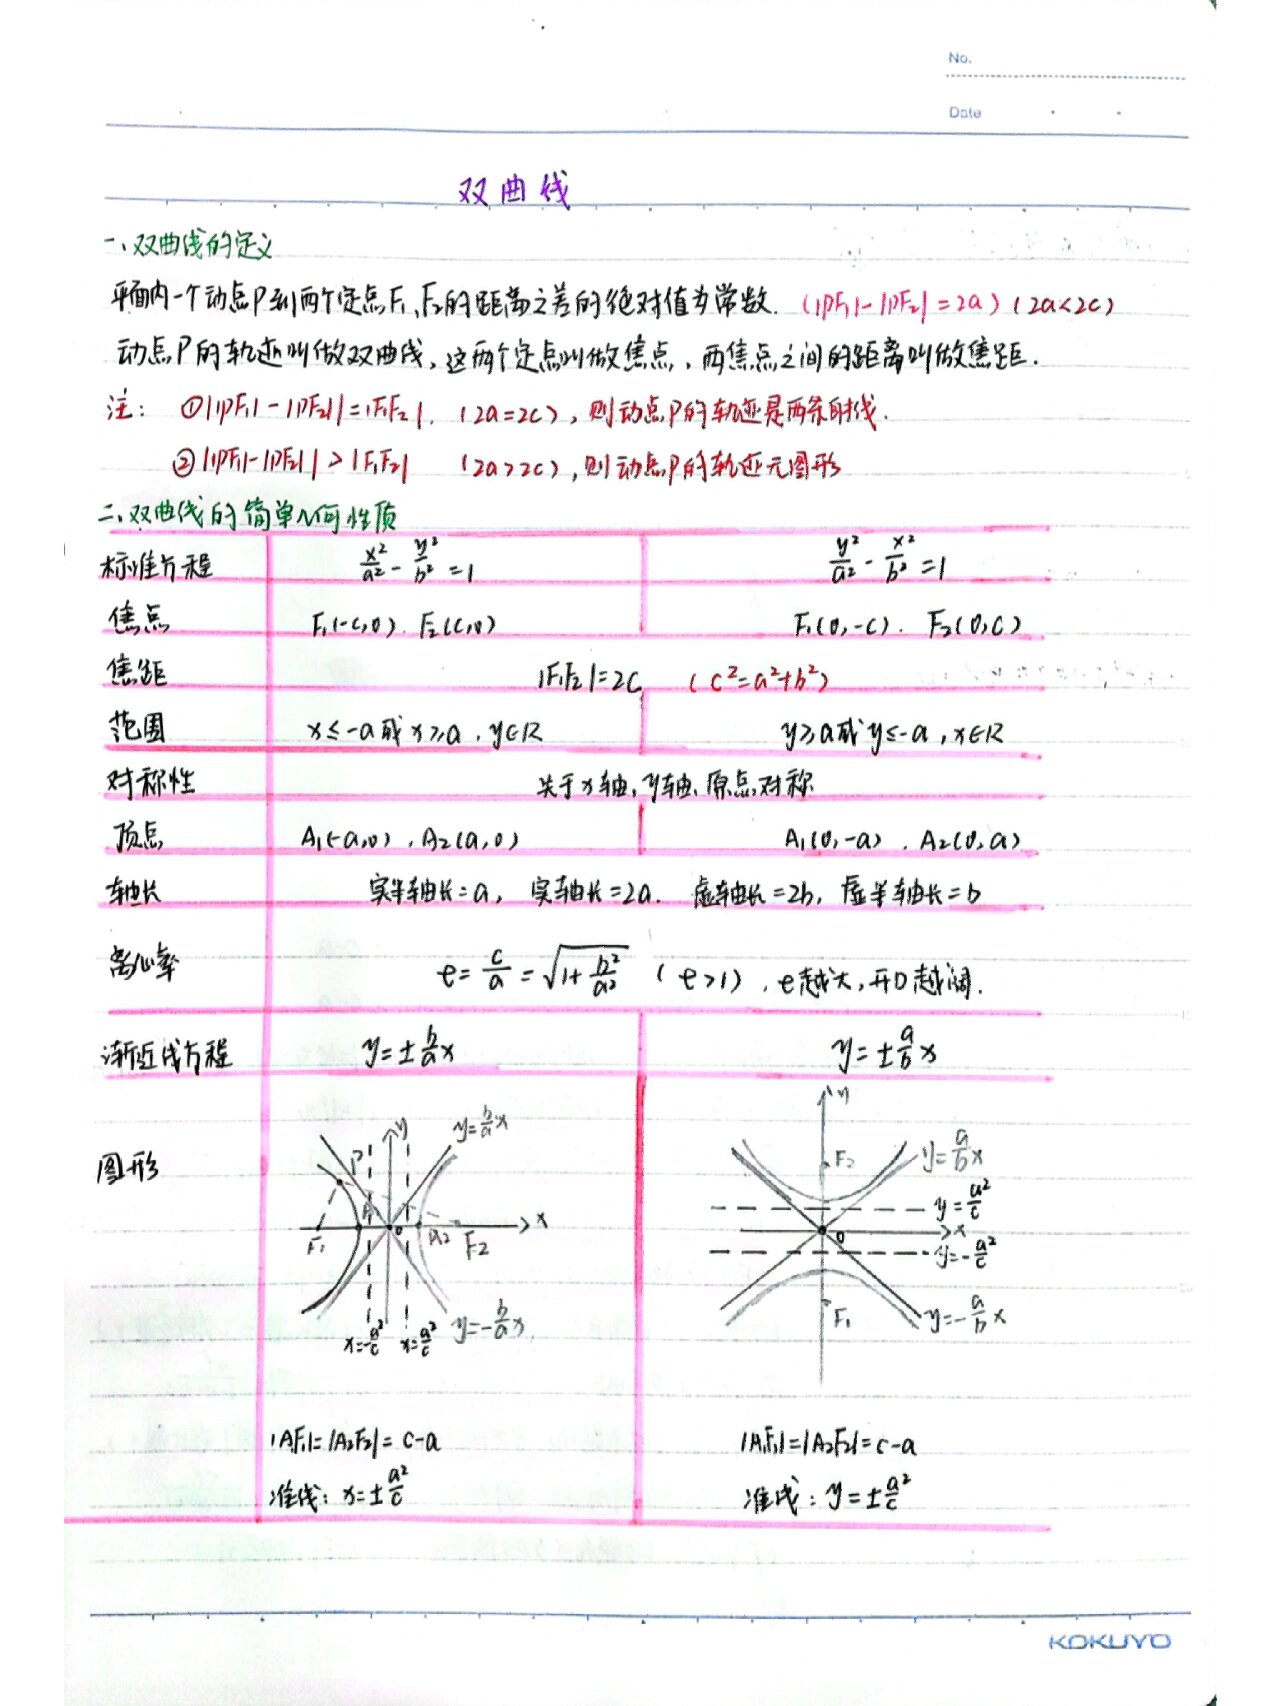 No.
Date
双曲线
一、双曲线的定义
平面内一个动点P到两个定点F₁、F₂的距离之差的绝对值为常数.(|PF₁|-|PF₂|=2a)(2a<2c)
动点P的轨迹叫做双曲线,这两个定点叫做焦点,两焦点之间的距离叫做焦距.
注: ①||PF₁|-|PF₂||=|F₁F₂|. (2a=2c),则动点P的轨迹是两条射线.
②||PF₁|-|PF₂||>|F₁F₂| (2a>2c),则动点P的轨迹无图形
二、双曲线的简单几何性质
标准方程 x²/a² - y²/b² = 1 y²/a² - x²/b² = 1
焦点 F₁(-c,0). F₂(c,0) F₁(0,-c). F₂(0,c)
焦距 |F₁F₂|=2c (c²=a²+b²)
范围 x≤-a或x≥a,y∈R y≥a或y≤-a,x∈R
对称性 关于x轴,y轴、原点对称
顶点 A₁(-a,0),A₂(a,0) A₁(0,-a),A₂(0,a)
轴长 实半轴长=a, 实轴长=2a. 虚轴长=2b, 虚半轴长=b
离心率 e=c/a=√(1+b²/a²) (e>1),e越大,开口越阔.
渐近线方程 y=±b/a x y=±a/b x
图形
y y=b/a x
P
F₁ A 0 a₂ F₂ x
x=-a²/c x=a²/c y=-b/a x
y
F₂ y=a/b x
y=a²/c
0 x
y=-a²/c
F₁ y=-a/b x
|AF₁|=|A₂F₂|=c-a |AF₁|=|A₂F₂|=c-a
准线: x=±a²/c 准线: y=±a²/c
KOKUYO